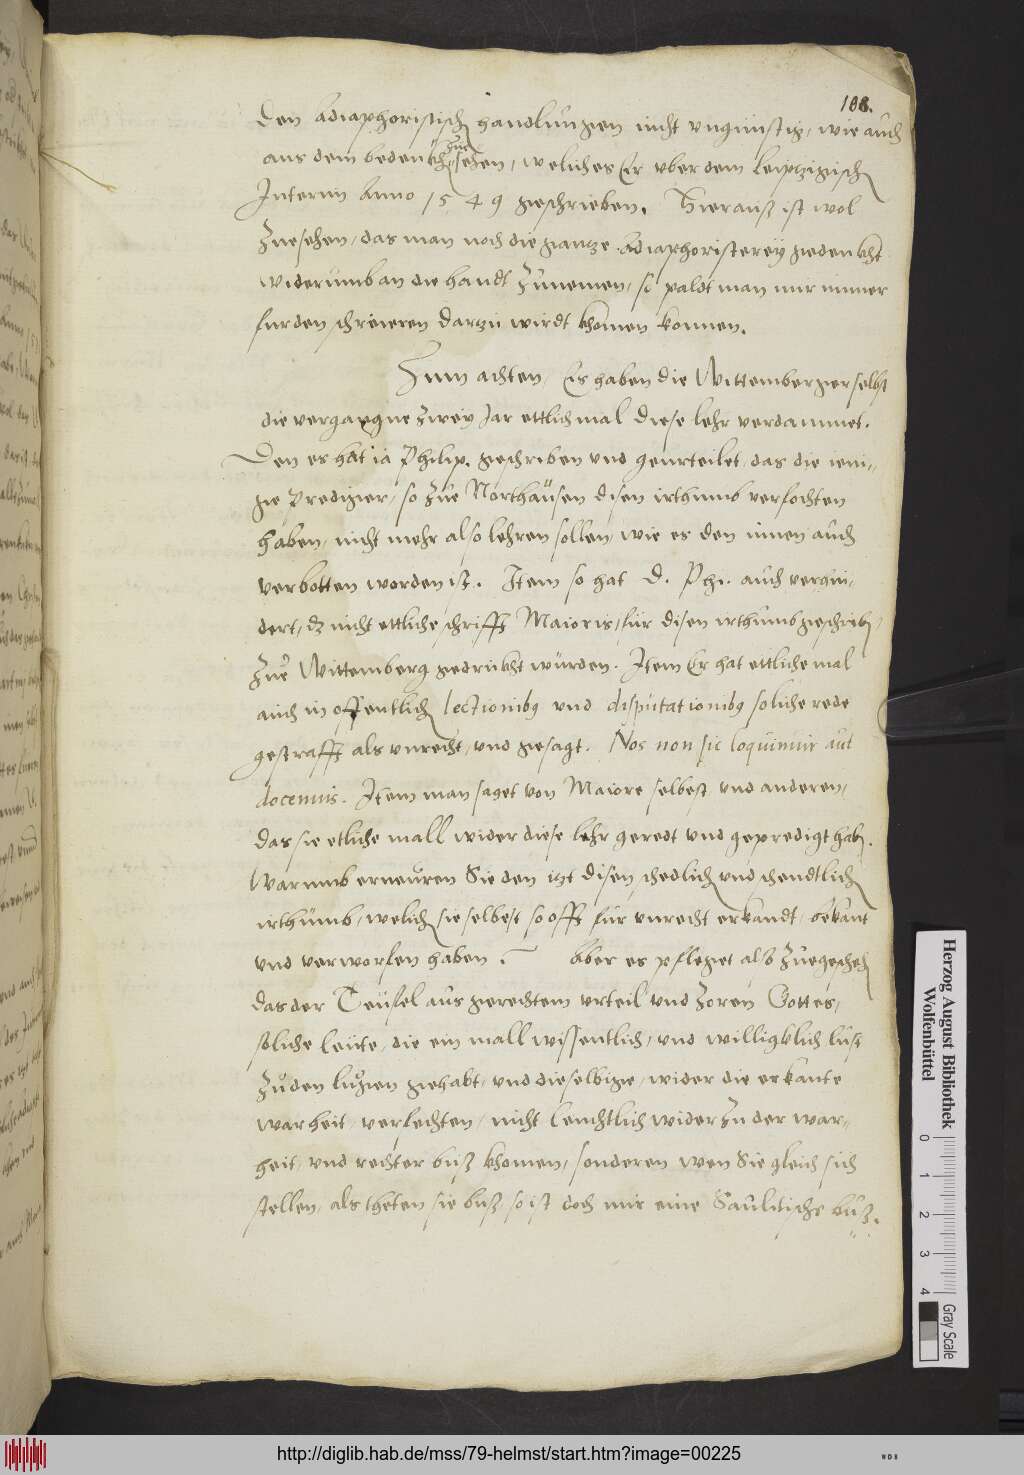 108.
den Adiaphoristisch handlungen nicht ungünstig, wie auch
aus dem bedenckh zue sehen, welches Er uber dem Leipzigisch
Interim Anno 1549 geschrieben. Hieraus ist wol
Zuesehen, das man noch die gantze Adiaphoristerey gedenckht
widerumb an die handt Zunemen, so paldt man nur immer
fur den schreieren darzu wirdt khomen konnen.
Zum achten, Es haben die Wittemberger selbst
die vergangne Zwey Jar ettlich mal diese lehr verdammet.
Den es hat ia Philip. geschriben und geurteilet, das die ieni-
ge Prediger, so Zue Northausen disen irthumb verfochten
haben, nicht mehr also lehren sollen, wie es den innen auch
verbotten worden ist. Item so hat D. Phi. auch verhin-
dert, dz nicht ettliche schrifft Maioris, für disen irthumb geschrieb,
Zue Wittemberg gedruckht würden. Item Er hat ettliche mal
auch in offentlich lectionibus und disputationibus soliche rede
gestrafft als unrecht, und gesagt. Nos non sic loquimur aut
docemus. Item man saget von Maiore selbest und anderen,
das sie etliche mall wider diese lehr geredt und gepredigt hab.
Warumb erneüren Sie den itzt disen schedlich und schendtlich
irthümb, welich sie selbest so offt für unrecht erkandt, bekant
und verworfen haben. Aber es pfleget also Zuegescheh
das der Teüfel aus gerechtem urteil und Zoren Gottes,
soliche leüte, die ein mall wissentlich, und willigklich lust
Zu den lugen gehabt, und dieselbige, wider die erkante
warheit, verfechten, nicht leichtlich wider Zu der war-
heit, und rechter buß khomen, sonderen wen Sie gleich sich
stellen, als theten sie buß, so ist doch nur eine Saulitische buß.
Herzog August Bibliothek
Wolfenbüttel
0 1 2 3 4
Gray Scale
http://diglib.hab.de/mss/79-helmst/start.htm?image=00225